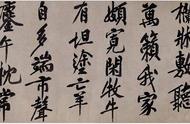 牀敷聽
萬籟我家
頗寬閑牧牛
有坦塗亡羊
自多端市聲
鏖午枕常